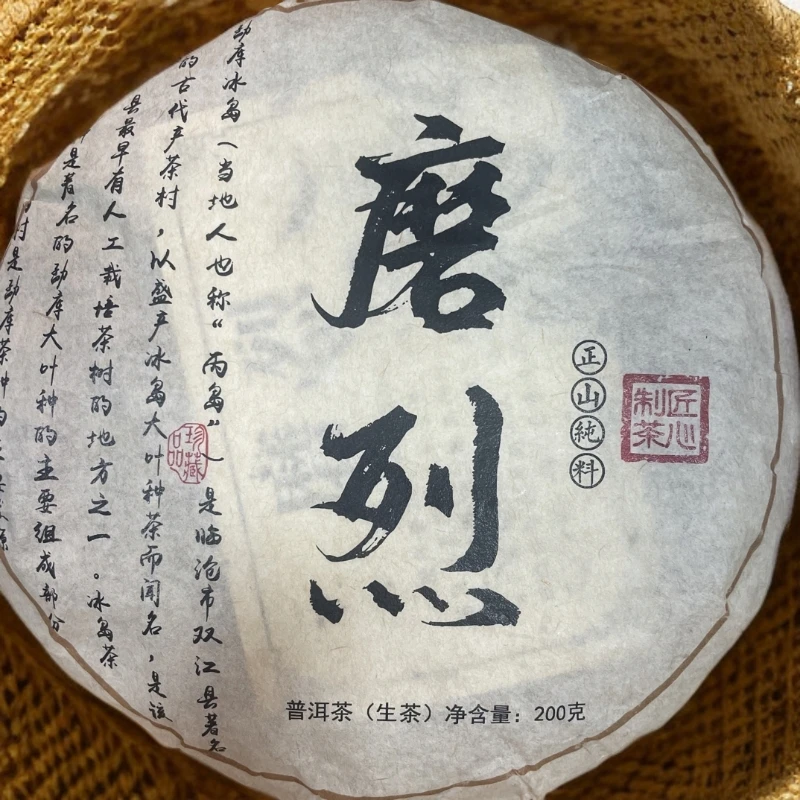 磨烈
正山純料
匠心制茶
珍藏品
勐库冰岛（当地人也称“丙岛”）是临沧市双江县著名
的古代产茶村，以盛产冰岛大叶种茶而闻名，是该
县最早有人工栽培茶树的地方之一。冰岛茶
是著名的勐库大叶种的主要组成部份
村是勐库茶种的
普洱茶（生茶）净含量：200克